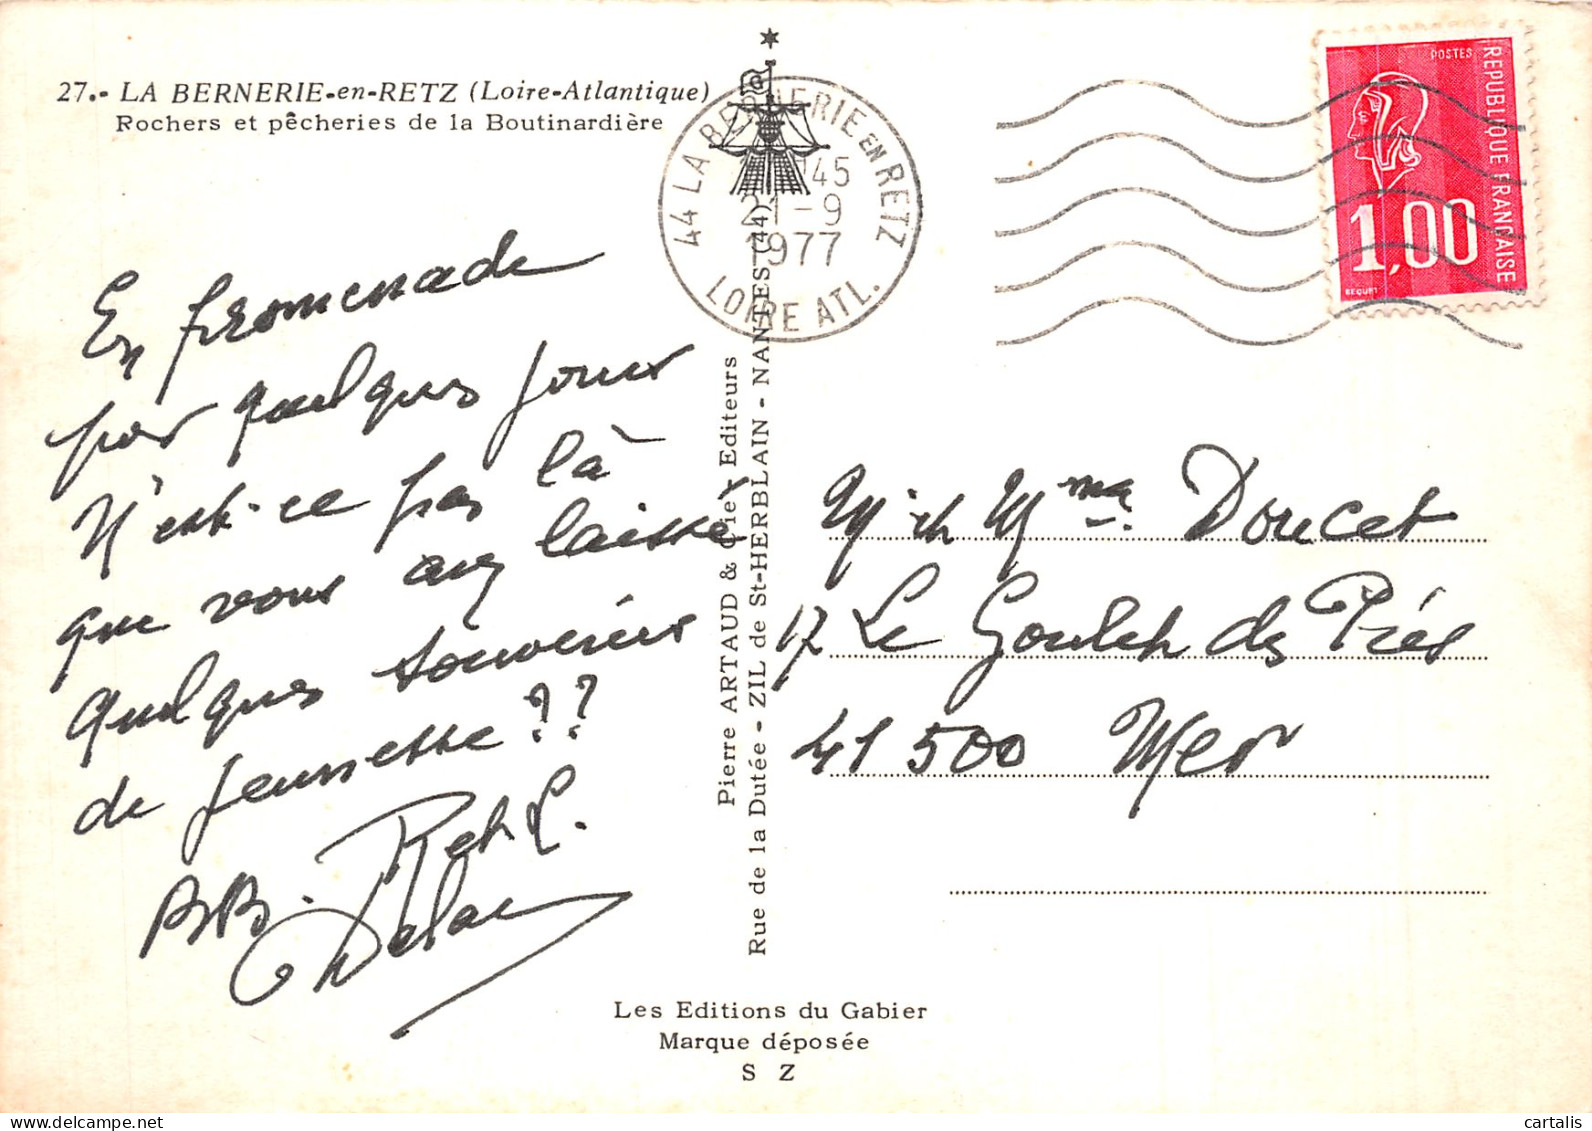 27.- LA BERNERIE-en-RETZ (Loire-Atlantique)
Rochers et pêcheries de la Boutinardière
44 LA BERNERIE EN RETZ
45
21-9
1977
LOIRE ATL.
POSTES
REPUBLIQUE FRANÇAISE
1,00
BEQUET
En promenade
par quelques jours
N'est-ce pas là
que vous avez laissé
quelques souvenirs
de jeunesse??
BB. R et L.
Pierre ARTAUD & Cie, Editeurs
Rue de la Dutée - ZIL de St-HERBLAIN - NANTES (44)
M. et Mme Doucet
17 Le Goulet des Prés
41 500 Mer
Les Editions du Gabier
Marque déposée
S Z
cartalis